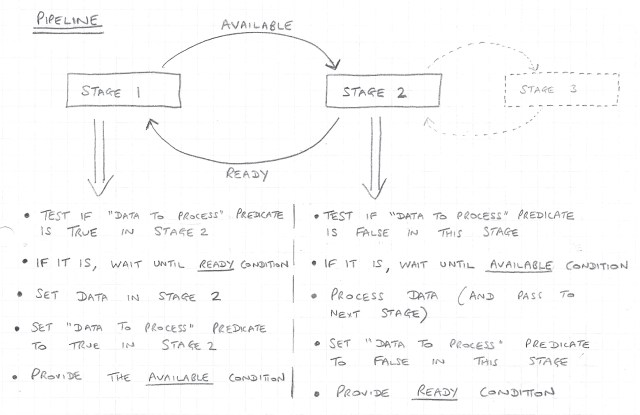 PIPELINE
AVAILABLE
STAGE 1
STAGE 2
STAGE 3
READY
• TEST IF "DATA TO PROCESS" PREDICATE
IS TRUE IN STAGE 2
• IF IT IS, WAIT UNTIL READY CONDITION
• SET DATA IN STAGE 2
• SET "DATA TO PROCESS" PREDICATE
TO TRUE IN STAGE 2
• PROVIDE THE AVAILABLE CONDITION
• TEST IF "DATA TO PROCESS" PREDICATE
IS FALSE IN THIS STAGE
• IF IT IS, WAIT UNTIL AVAILABLE CONDITION
• PROCESS DATA (AND PASS TO
NEXT STAGE)
• SET "DATA TO PROCESS" PREDICATE
TO FALSE IN THIS STAGE
• PROVIDE READY CONDITION